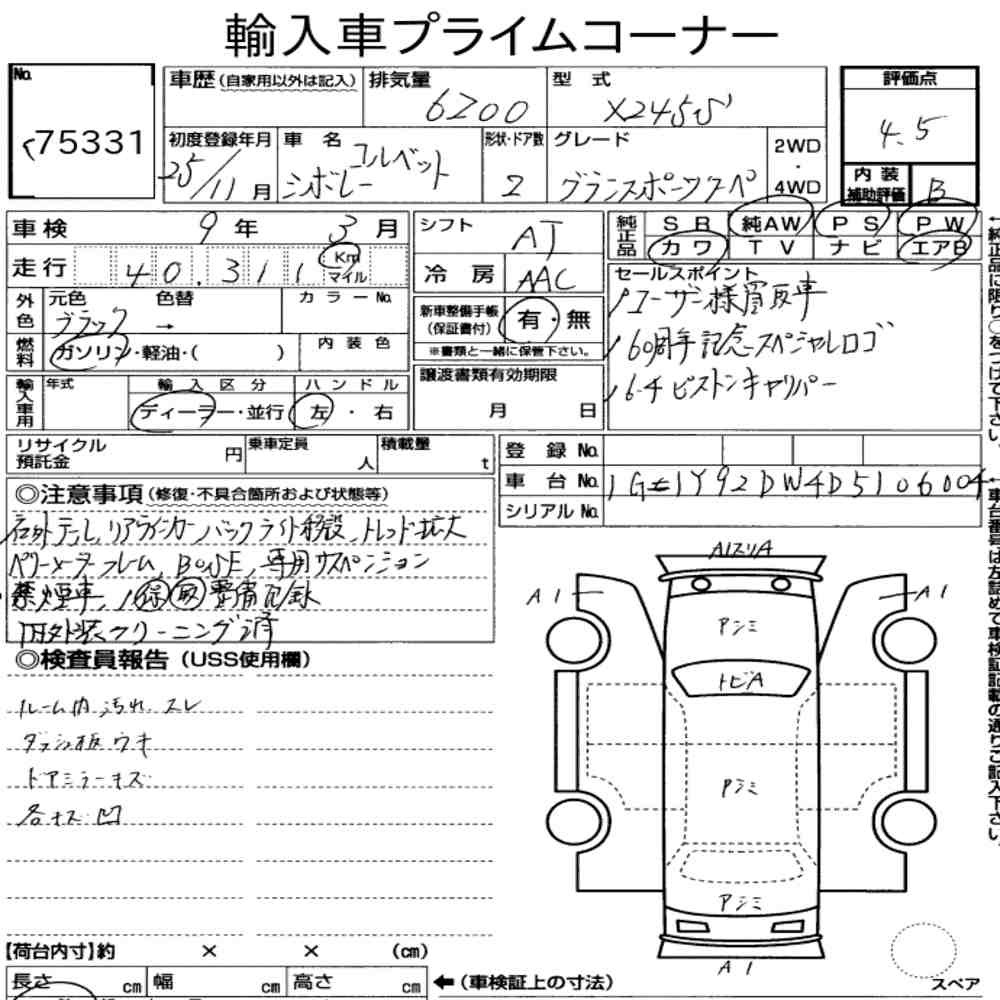 輸入車プライムコーナー
No. 75331
車歴 (自家用以外は記入) 排気量 6200 型式 X245S
評価点 4.5
内装補助評価 B
初度登録年月 25/11月 車名 シボレー コルベット 形状・ドア数 2 グレード グランスポーツクーペ 2WD・4WD
車検 9年 3月
シフト AT
純正品 SR 純AW PS PW
カワ TV ナビ エアB
走行 40,311 Km マイル
冷房 AAC
セールスポイント
ユーザー様買取車
60周年記念スペシャルロゴ
6-4ピストンキャリパー
外色 元色 ブラック 色替 → カラーNo.
新車整備手帳(保証書付) 有・無
※書類と一緒に保管下さい。
燃料 ガソリン・軽油・( ) 内装色
譲渡書類有効期限
月 日
輸入車用 年式 輸入区分 ハンドル
ディーラー・並行 左・右
リサイクル預託金 円 乗車定員 人 積載量 t
登録No.
車台No. 1G1Y92DW4D5106004
シリアルNo.
◎注意事項 (修復・不具合箇所および状態等)
リアウィンカー バックライト移設、トレッド拡大
ペリメーターフレーム、BOSE、専用サスペンション
禁煙車、整備記録
内外装クリーニング済
◎検査員報告 (USS使用欄)
ルーム内 汚れ、スレ
ダッシュ板 ウキ
ドアミラーキズ
各キズ 凹
A1スリA
A1
A1
アシミ
トビA
アシミ
アシミ
A1
スペア
【荷台内寸】約 × × (cm)
長さ cm 幅 cm 高さ cm
←(車検証上の寸法)
←純正品に限り○をつけて下さい。
←車台番号は左詰めて車検証記載の通りご記入下さい。